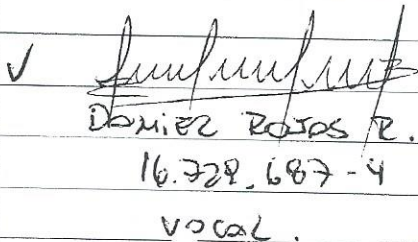 ✓
DANIEL ROJAS R.
16.729.687-4
VOCAL.